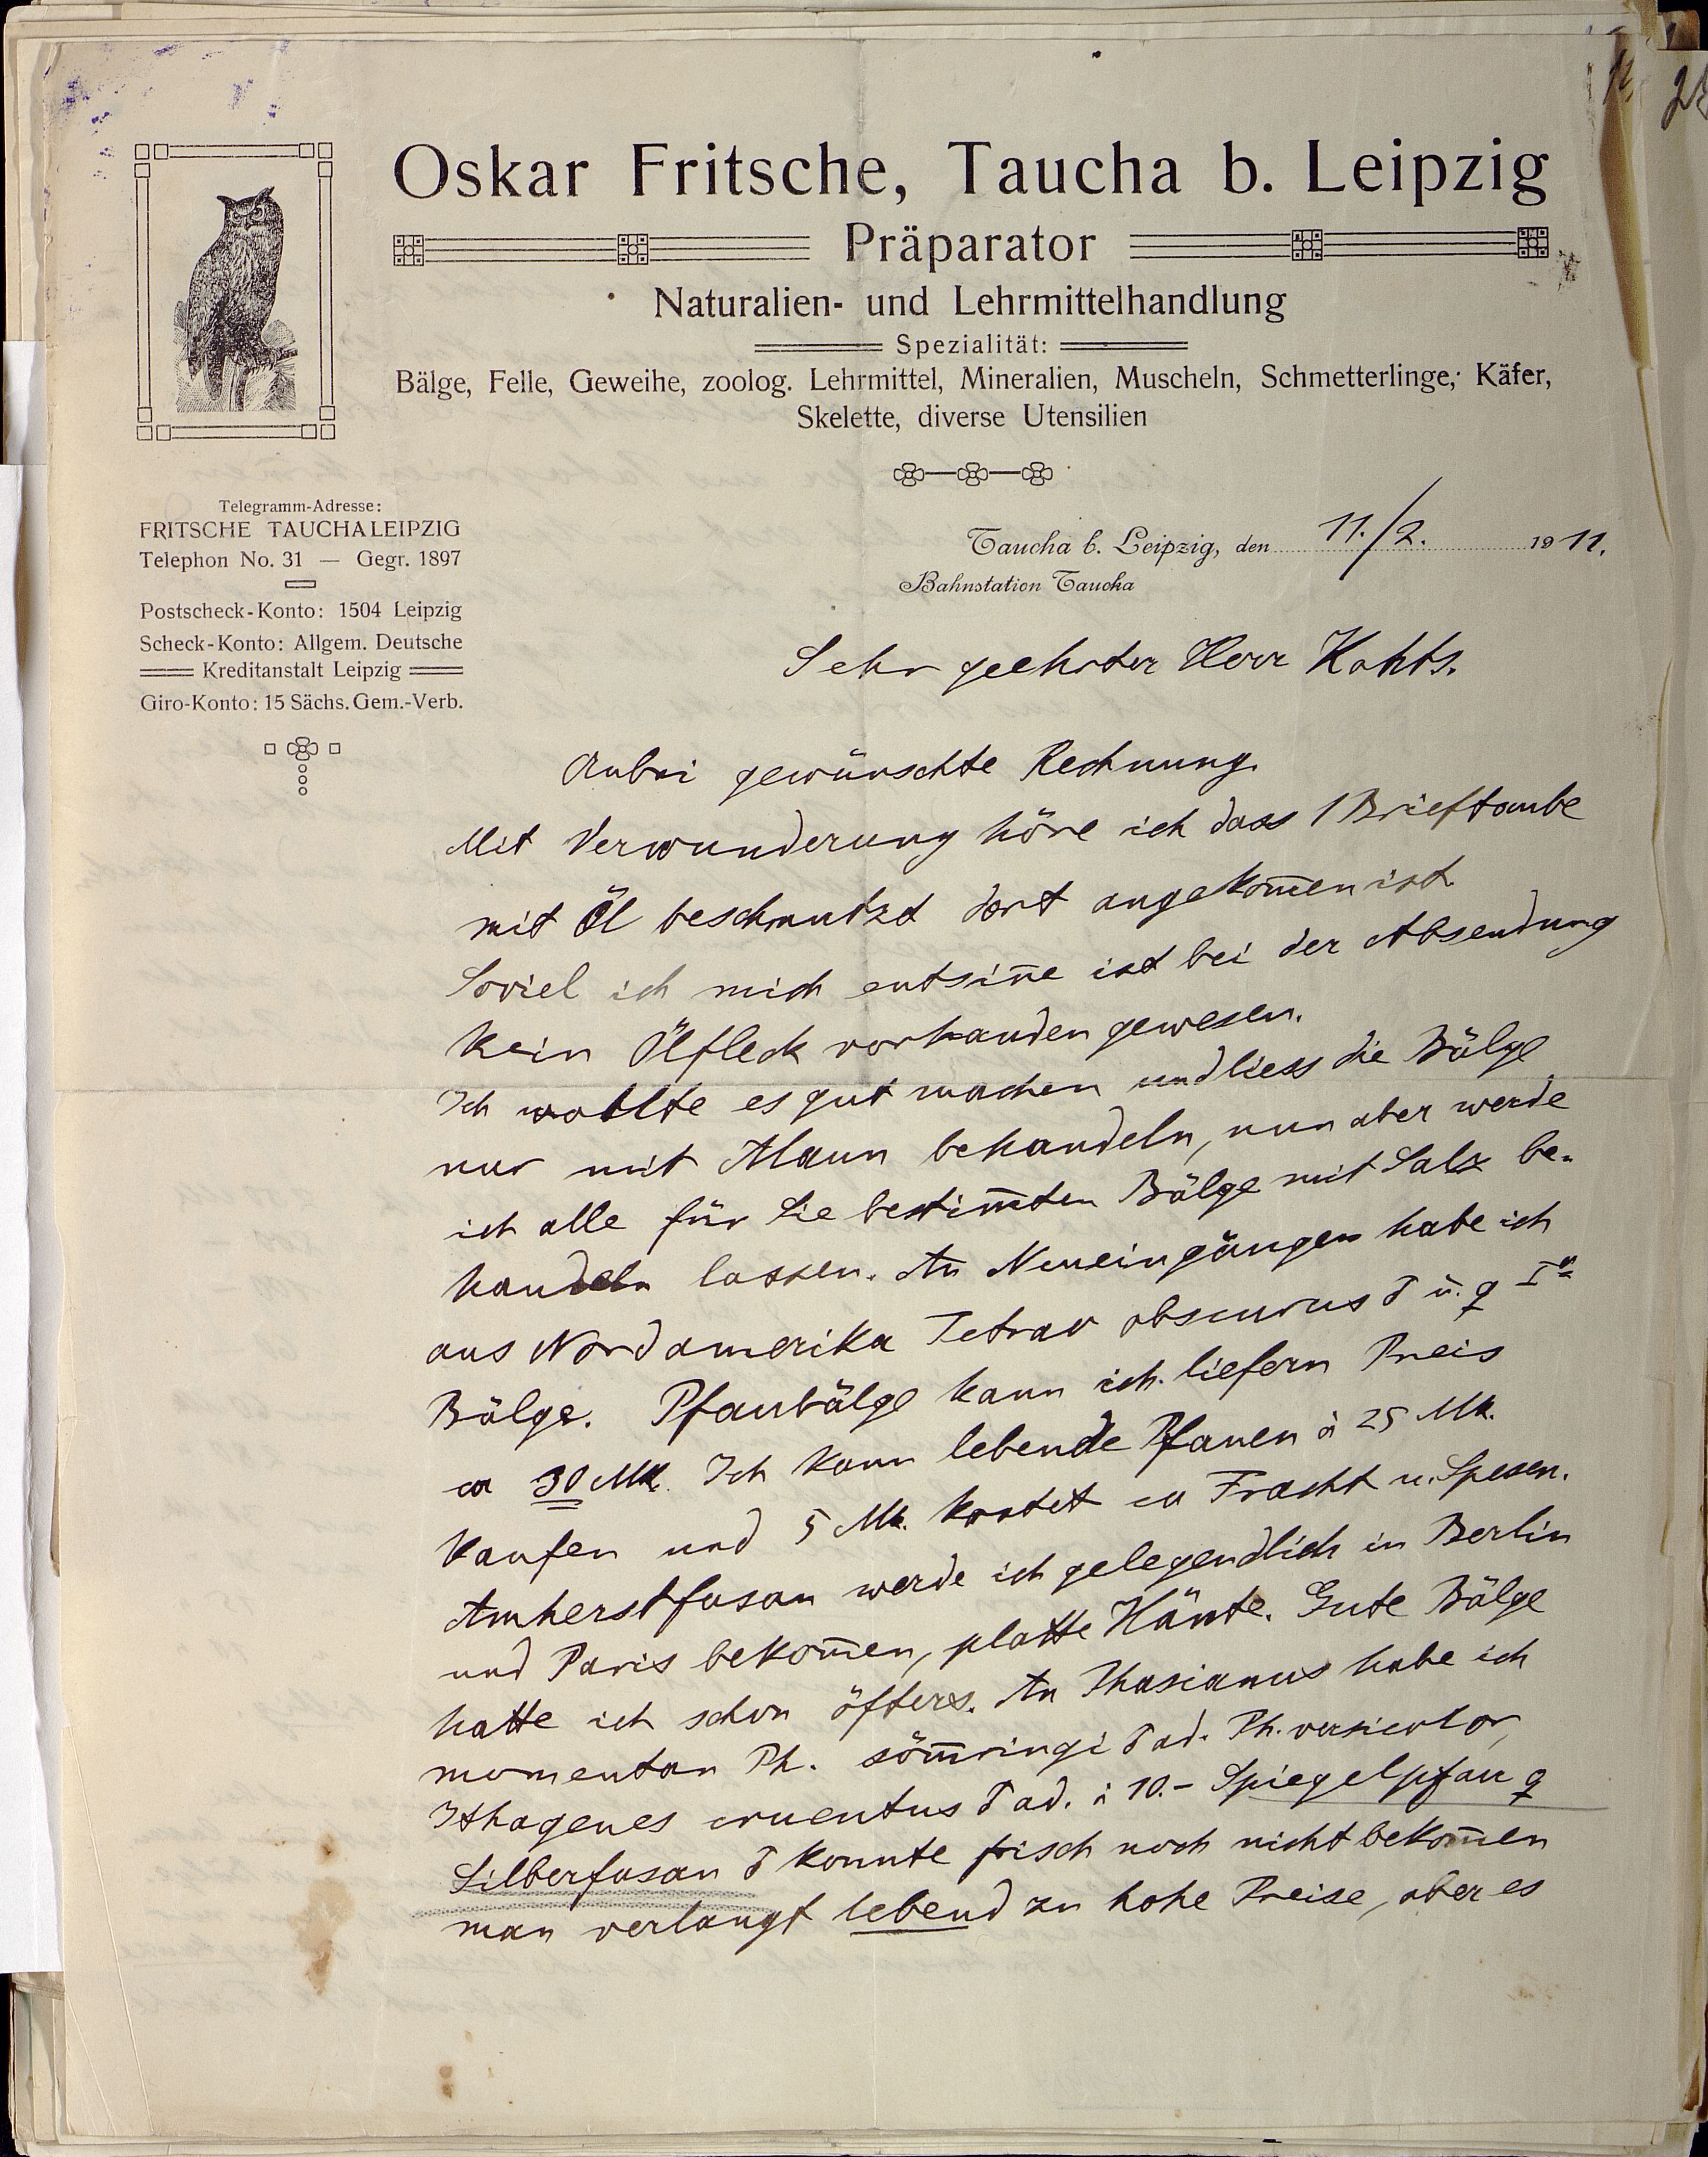 Oskar Fritsche, Taucha b. Leipzig
Präparator
Naturalien- und Lehrmittelhandlung
Spezialität:
Bälge, Felle, Geweihe, zoolog. Lehrmittel, Mineralien, Muscheln, Schmetterlinge, Käfer,
Skelette, diverse Utensilien
Telegramm-Adresse:
FRITSCHE TAUCHALEIPZIG
Telephon No. 31 — Gegr. 1897
Postscheck-Konto: 1504 Leipzig
Scheck-Konto: Allgem. Deutsche
Kreditanstalt Leipzig
Giro-Konto: 15 Sächs. Gem.-Verb.
Taucha b. Leipzig, den 11./2. 1911.
Bahnstation Taucha
Sehr geehrter Herr Kohts.
Anbei gewünschte Rechnung.
Mit Verwunderung höre ich dass 1 Brieftaube
mit Öl beschmutzt dort angekom̅en ist.
Soviel ich mich entsin̅e ist bei der Absendung
kein Ölfleck vorhanden gewesen.
Ich wollte es gut machen und liess die Bälge
nur mit Alaun behandeln, nun aber werde
ich alle für Sie bestim̅ten Bälge mit Salz be-
handeln lassen. An Neueingängen habe ich
aus Nordamerika Tetrao obscurus ♂ u. ♀ Iᵃ
Bälge. Pfaubälge kann ich liefern Preis
ca 30 Mk. Ich kann lebende Pfauen à 25 Mk.
kaufen und 5 Mk. kostet ca Fracht u. Spesen.
Amherstfasan werde ich gelegendlich in Berlin
und Paris bekom̅en, platte Häute. Gute Bälge
hatte ich schon öfters. An Phasianus habe ich
momentan Ph. söm̅ringi ♂ ad. Ph. versicolor,
Ithagenes cruentus ♂ ad. à 10.- Spiegelpfau ♀
Silberfasan ♂ konnte frisch noch nicht bekom̅en
man verlangt lebend zu hohe Preise, aber es